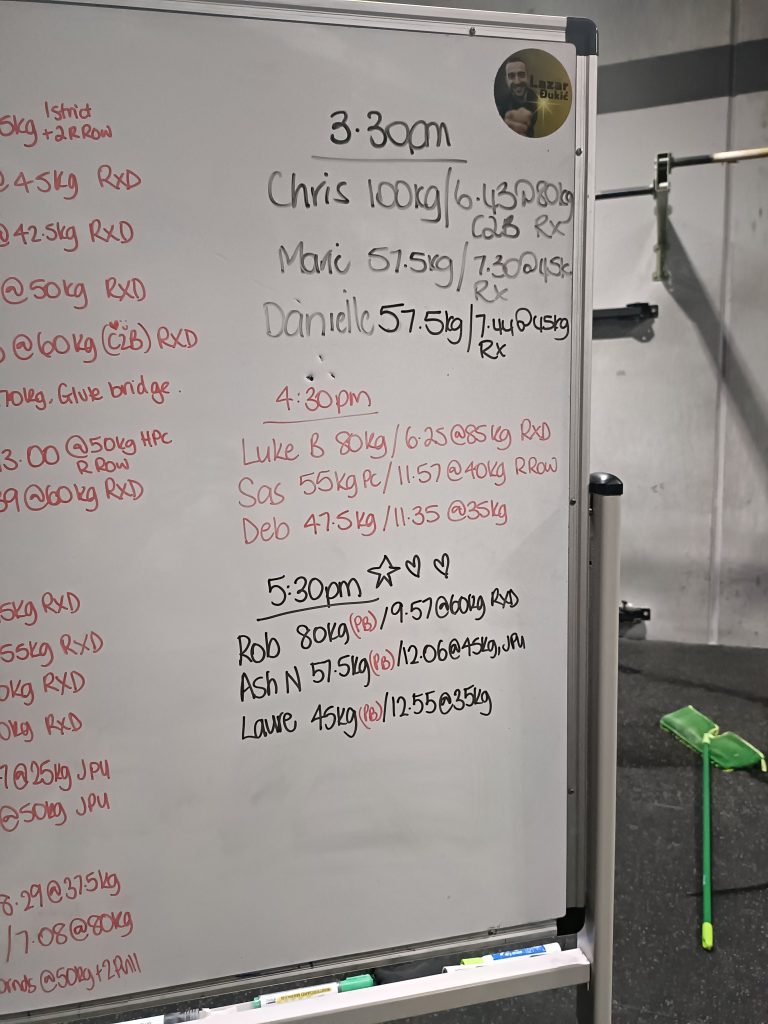 5kg 1strict
+2R Row
@45kg RXD
@42.5kg RXD
@50kg RXD
@60kg (C2B) RXD
70kg. Glute bridge.
3.00 @50kg HPC
R ROW
39@60kg RXD
5kg RXD
55kg RXD
0kg RXD
0kg RXD
7@25kg JPU
@50kg JPU
8.29@37.5kg
/7.08@80kg
@50kg+2
Lazar
Đukić
3.30pm
Chris 100kg/6.43@80kg
C2B RX
Marie 57.5kg/7.30@45k
RX
Danielle 57.5kg/7.44@45kg
RX
4:30pm
Luke B 80kg/6.25@85kg RXD
Sas 55kg PC/11.57@40kg R ROW
Deb 47.5kg/11.35 @35kg
5:30pm
Rob 80kg(PB)/9.57@60kg RXD
Ash N 57.5kg(PB)/12.06@45kg, JPU
Laure 45kg(PB)/12.55@35kg